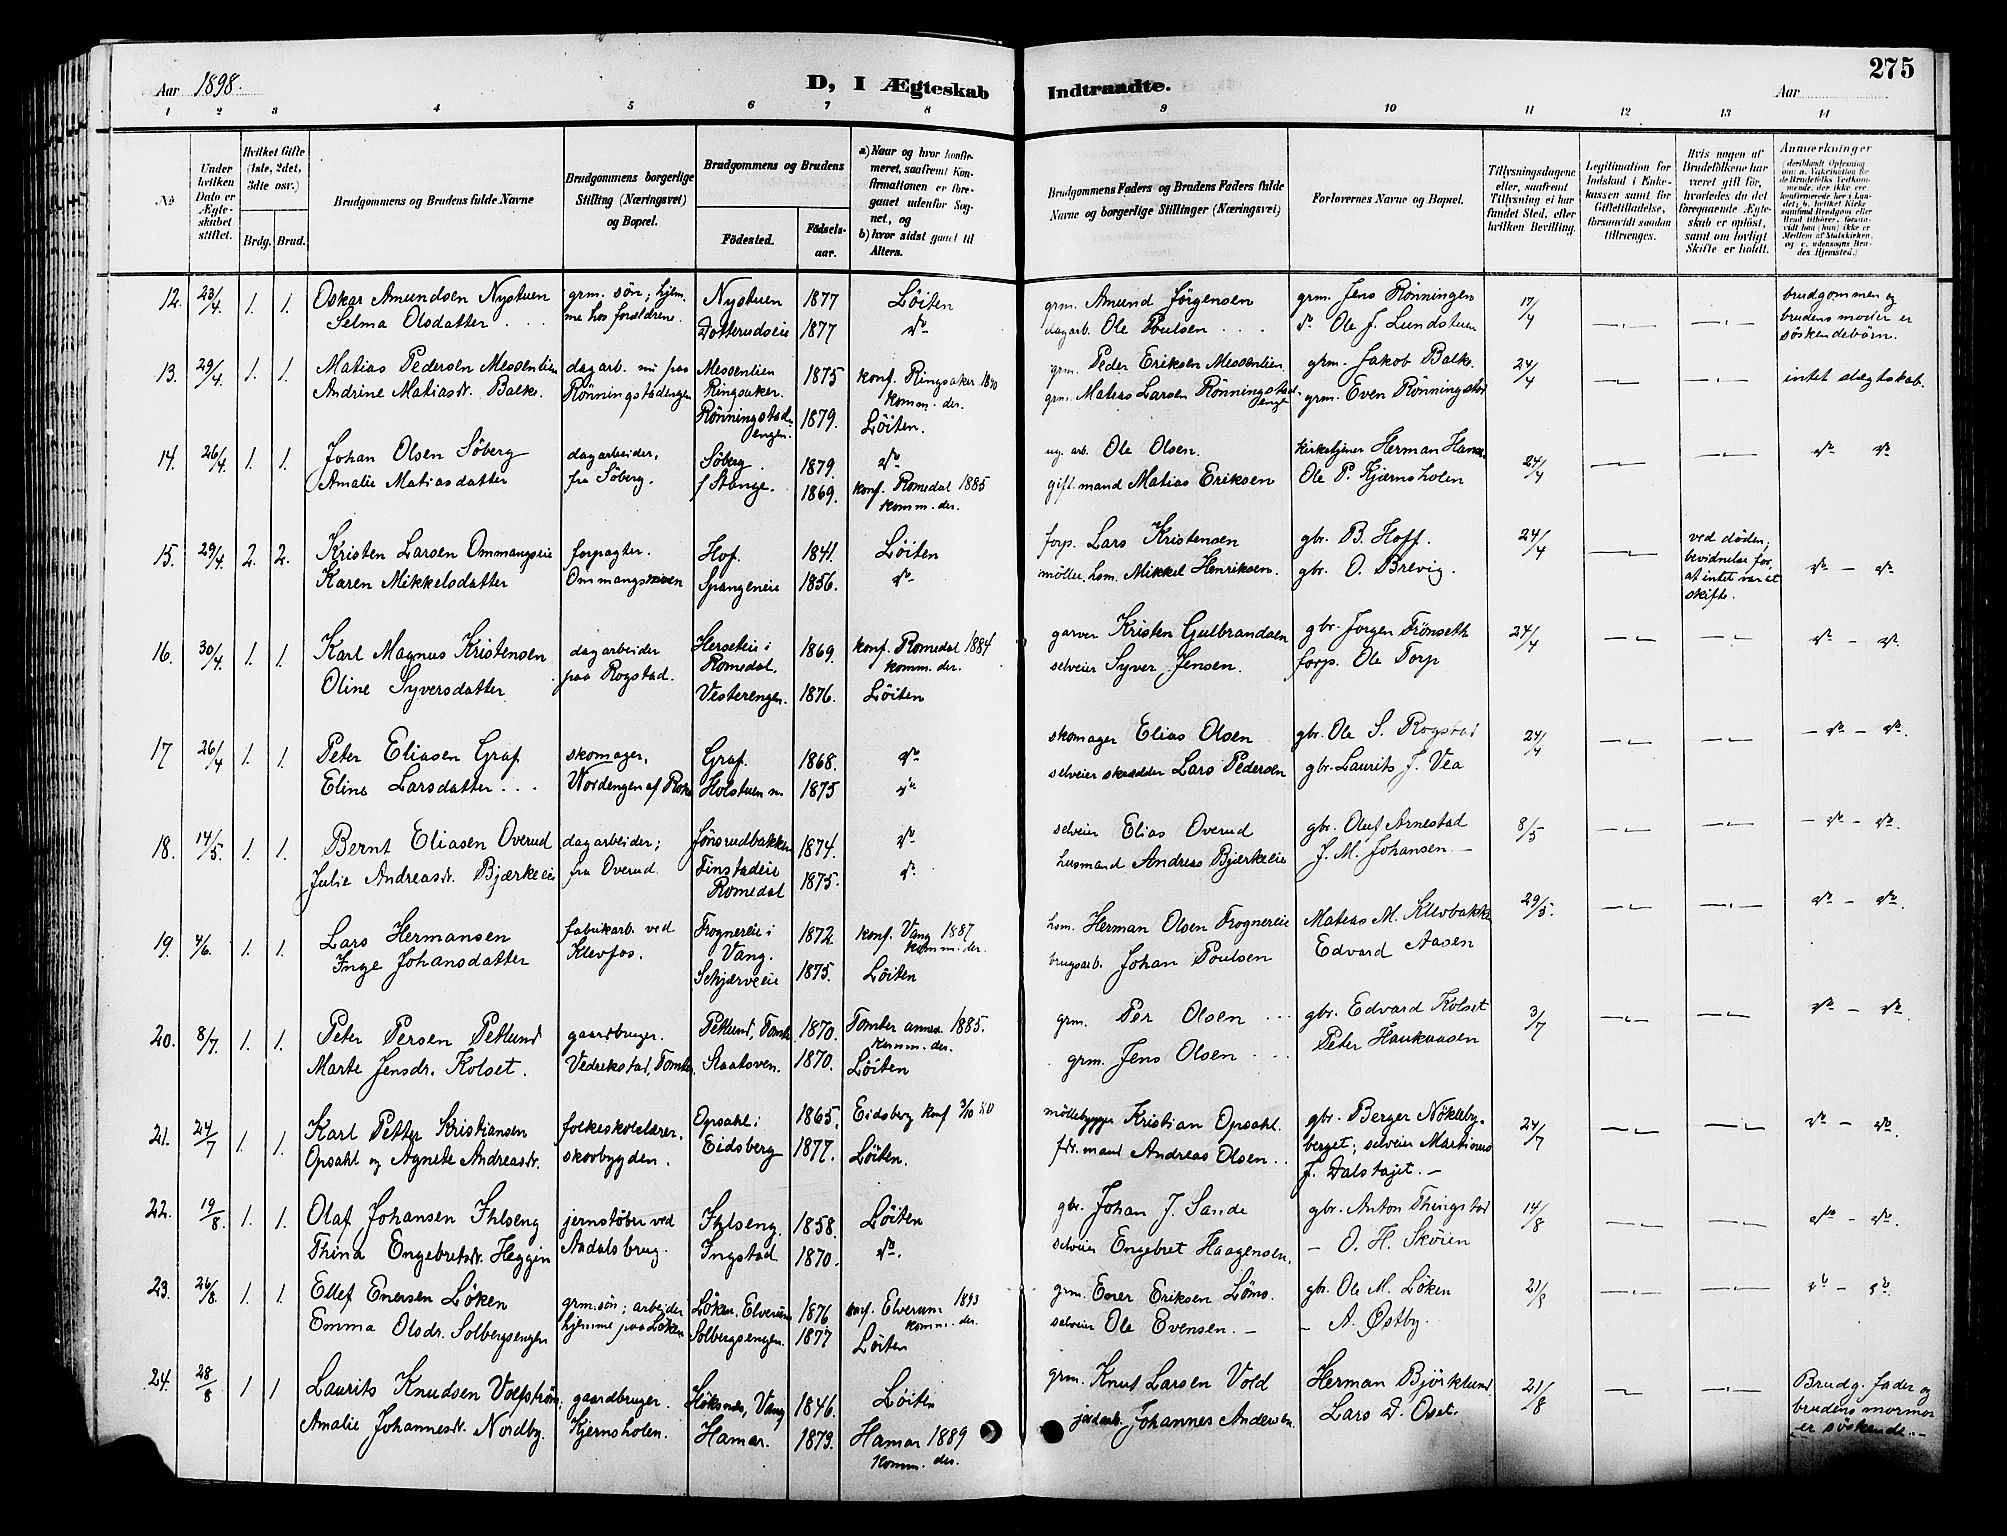 275
Aar 1898.
D, I Ægteskab Indtraadte.
Aar
1 2 3 4 5 6 7 8 9 10 11 12 13 14
No
Under hvilken Dato er Ægteskabet stiftet.
Hvilket Gifte (1ste, 2det, 3die osv.)
Brdg. Brud.
Brudgommens og Brudens fulde Navne
Brudgommens borgerlige Stilling (Næringsvei) og Bopæl.
Brudgommens og Brudens
Fødested.
Fødselsaar.
a) Naar og hvor konfirmeret, saafremt Konfirmationen er foregaaet udenfor Sognet, og
b) hvor sidst gaaet til Alters.
Brudgommens Faders og Brudens Faders fulde Navne og borgerlige Stillinger (Næringsvei)
Forlovernes Navne og Bopæl.
Tillysningsdagene eller, saafremt Tillysning ei har fundet Sted, efter hvilken Bevilling.
Legitimation for Indskud i Enkekassen samt for Giftetilladelse, forsaavidt saadan tiltrænges.
Hvis nogen af Brudefolkene har været gift før, hvorledes da det foregaaende Ægteskab er opløst, samt om lovligt Skifte er holdt.
Anmerkninger
12. 23/4 1. 1. Oskar Amundsen Nystuen grm. søn; hjem- Nystuen 1877 Löiten grm. Amund Jörgensen grm. Jens Rönningen 17/4 brudgommen og
Selma Olsdatter me hos forældrene. Dotterudseie 1877 do dagarb. Ole Poulsen do Ole J. Lundstuen brudens moder er
söskendebörn.
13. 29/4. 1. 1. Matias Pedersen Messenlien dagarb. nu paa Messenlien 1875 konf. Ringsaker 1890 grm. Peder Eriksen Messenlien grm. Jakob Balke. 24/4 intet slægtskab.
Andrine Matiasdr. Balke. Rönningstadengen Ringsaker komm. der. grm. Matias Larsen Rönningstadenge grm. Even Rönningstad
Rönningstadengen. 1879. Löiten.
14. 26/4. 1. 1. Johan Olsen Söberg dagarbeider, Söberg. 1879. do ug. arb. Ole Olsen. kirketjener Herman 24/4 do do
Amalie Matiasdatter fra Söberg. Stange. 1869. konf. Romedal 1885 gift. mand Matias Eriksen Ole P. Kjærnsholen
komm. der.
15. 29/4. 2. 2. Kristen Larsen Ommangseie forpagter. Hof. 1841. Löiten forp. Lars Kristensen gbr. B. Hoff. 24/4 ved døden;
Karen Mikkelsdatter Spangeneie 1856. do möller, hsm. Mikkel Henriksen. gbr. O. Brevig. bevidnelse for, do - do
at intet var at
skifte.
16. 30/4. 1. 1. Karl Magnus Kristensen dagarbeider Herseteie i 1869. konf. Romedal 1884 garver Kristen Gulbrandsen gbr. Jorgen Frönseth 24/4 do - do.
Oline Syversdatter paa Rogstad. Romedal. komm. der. selveier Syver Jensen. forp. Ole Torp
Vesterengen. 1876. Löiten
17 26/4 1. 1. Peter Eliasen Graf skomager, Graf. 1868. do skomager Elias Olsen gbr. Ole S. Rogstad 24/4. - do - do.
Eline Larsdatter... Nordengen af Holstuen 1875 do selveier skrædder Lars Pedersen gbr. Laurits J. Vea
18. 14/5. 1. 1. Bernt Eliasen Overud dagarbeider; Jönsrudbakken 1874. do selveier Elias Overud gbr. Oluf Arnestad 8/5 - do - do.
Julie Andreasdr. Bjærkeeie fra Overud. Finstadeie 1875. do husmand Andreas Bjærkeeie J. M. Johansen. -
Romedal
19. 4/6. 1. 1. Lars Hermansen fabrikarb. ved Frognereie i 1872. konf. Vang 1887 hsm. Herman Olsen Frognereie Matias M. Klevbakke 29/5. do - do.
Inge Johansdatter Klevfos. Vang. komm. der. brugsarb. Johan Poulsen Edvard Aasen
Schjærveeie 1875. Löiten
20. 8/7. 1. 1. Peter Persen Petlund gaardbruger. Petlund, Tomter 1870. Tomter annex. 1885. grm. Per Olsen gbr. Edvard Kolset 3/7 do - do.
Marte Jensdr. Kolset. Vedrekstad, Tomter. Staatsven. 1870. komm. der. grm. Jens Olsen Peter Haukaasen
Löiten
21. 24/7 1. 1. Karl Petter Kristiansen folkeskolelærer. Opsahl i 1865. Eidsberg konf 3/10 80 möllebygger Kristian Opsahl. gbr. Berger Nökleby- 24/7 do - do.
Opsahl og Agnete Andreasdr. skorbygden. Eidsberg 1877. Löiten. mand Andreas Olsen berget; selveier Martinus
J. Dalstøjet. -
22. 19/8. 1. 1. Olaf Johansen Ihlseng jernstöber ved Ihlseng. 1858. Löiten gbr. Johan J. Sande gbr. Anton Thingstad 14/8 do - do.
Thina Engebretsdr. Heggin Aadalsbrug. Ingstad 1870. do. selveier Engebret Haagensen. - O. H. Skøien
23. 26/8. 1. 1. Ellef Enersen Löken grm. søn; arbeider Löken. Elverum 1876 konf. Elverum 1893 grm. Ener Eriksen Löms. gbr. Ole M. Löken 21/8 do - do.
Emma Olsdr. Solbergsengen hjemme paa Löken Solbergsengen. 1877 komm. der. selveier Ole Evensen. - - A. Østby.
Löiten
24. 28/8 1 1 Laurits Knudsen Volfström, gaardbruger. Höksnes, Vang 1846. Löiten grm. Knut Larsen Vold Herman Björklund 21/8 Brudg. fader og
Amalie Johannesdr. Nordby. Kjernsholen. Hamar. 1873. Hamar 1889 Johannes Andersen. Lars D. Oset. brudens mormor
Komm. der. er söskende. -